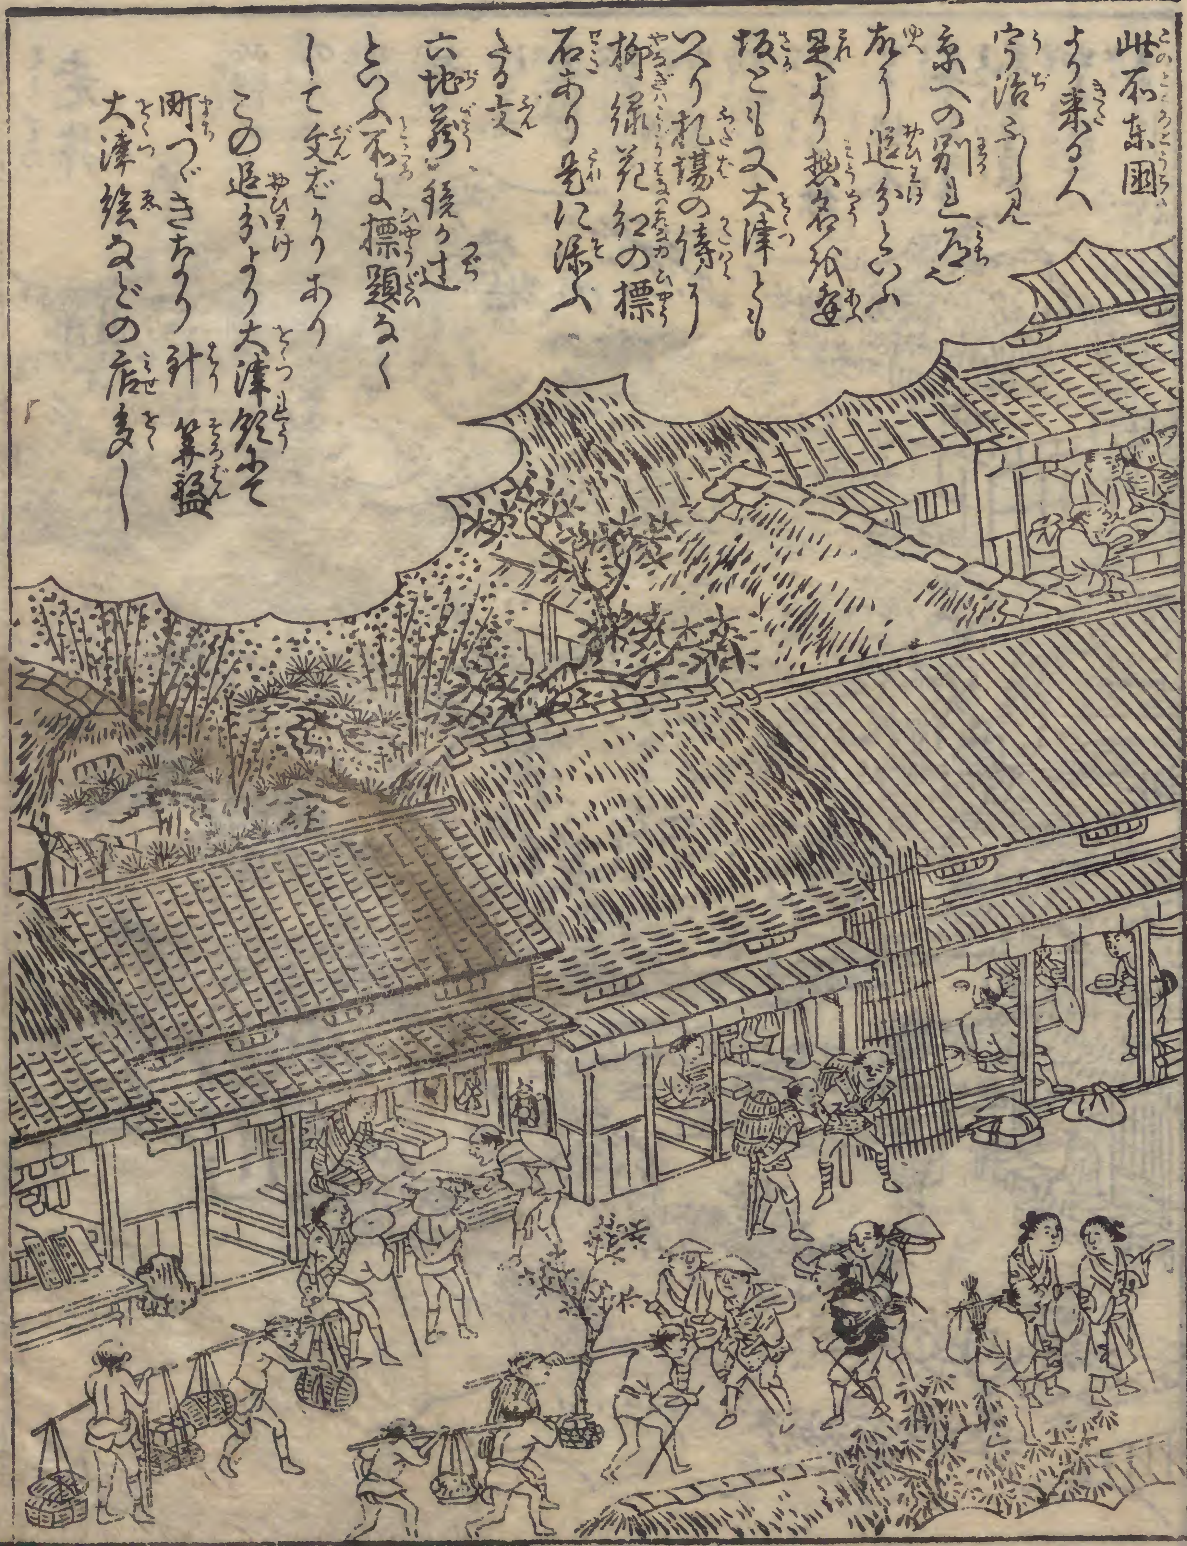 此所東國
より来る人
宇治ふし見
京への別れ道也
故に追分といふ
是より惣名を逢
坂とも又大津とも
いへり札場の傍に
柳緑花紅の標
石あり是に添ふ
たる文
六地蔵
辻
といふ所に標題なく
して文ばかりあり
この追分より大津領にて
町つゞきなり針算盤
大津絵などの店多し